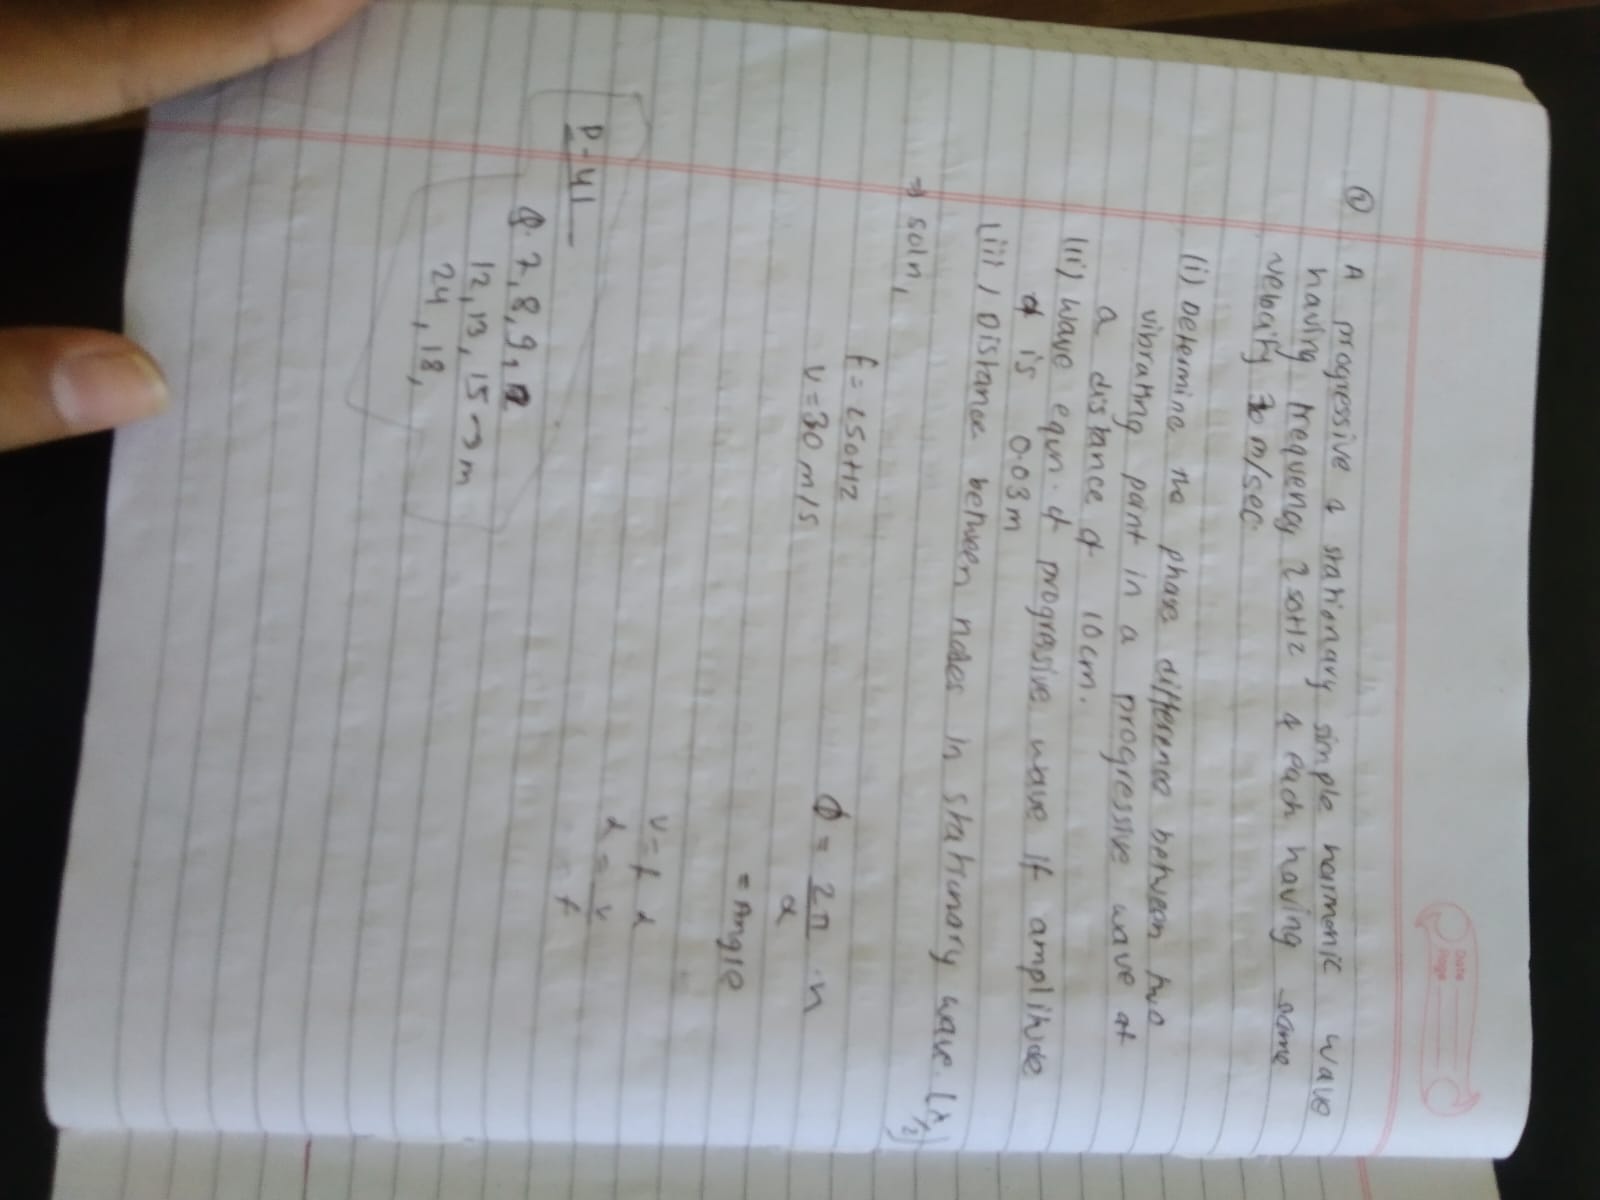 ② A progressive & stationary simple harmonic wave
having frequency 250Hz & each having same
velocity 30 m/sec.
(i) Determine the phase difference between two
vibrating point in a progressive wave at
a distance of 10cm.
(ii) wave equn. of progressive wave if amplitude
of is 0.03m
(iii) Distance between nodes in stationary wave. (λ/2)
⇒ soln,
f = 250Hz
v = 30 m/s
Φ = 2π/λ . x
= Angle
v = f λ
λ = v/f
P-41
Q. 7, 8, 9,
12, 13, 15 → m
24, 18,
Date
Page